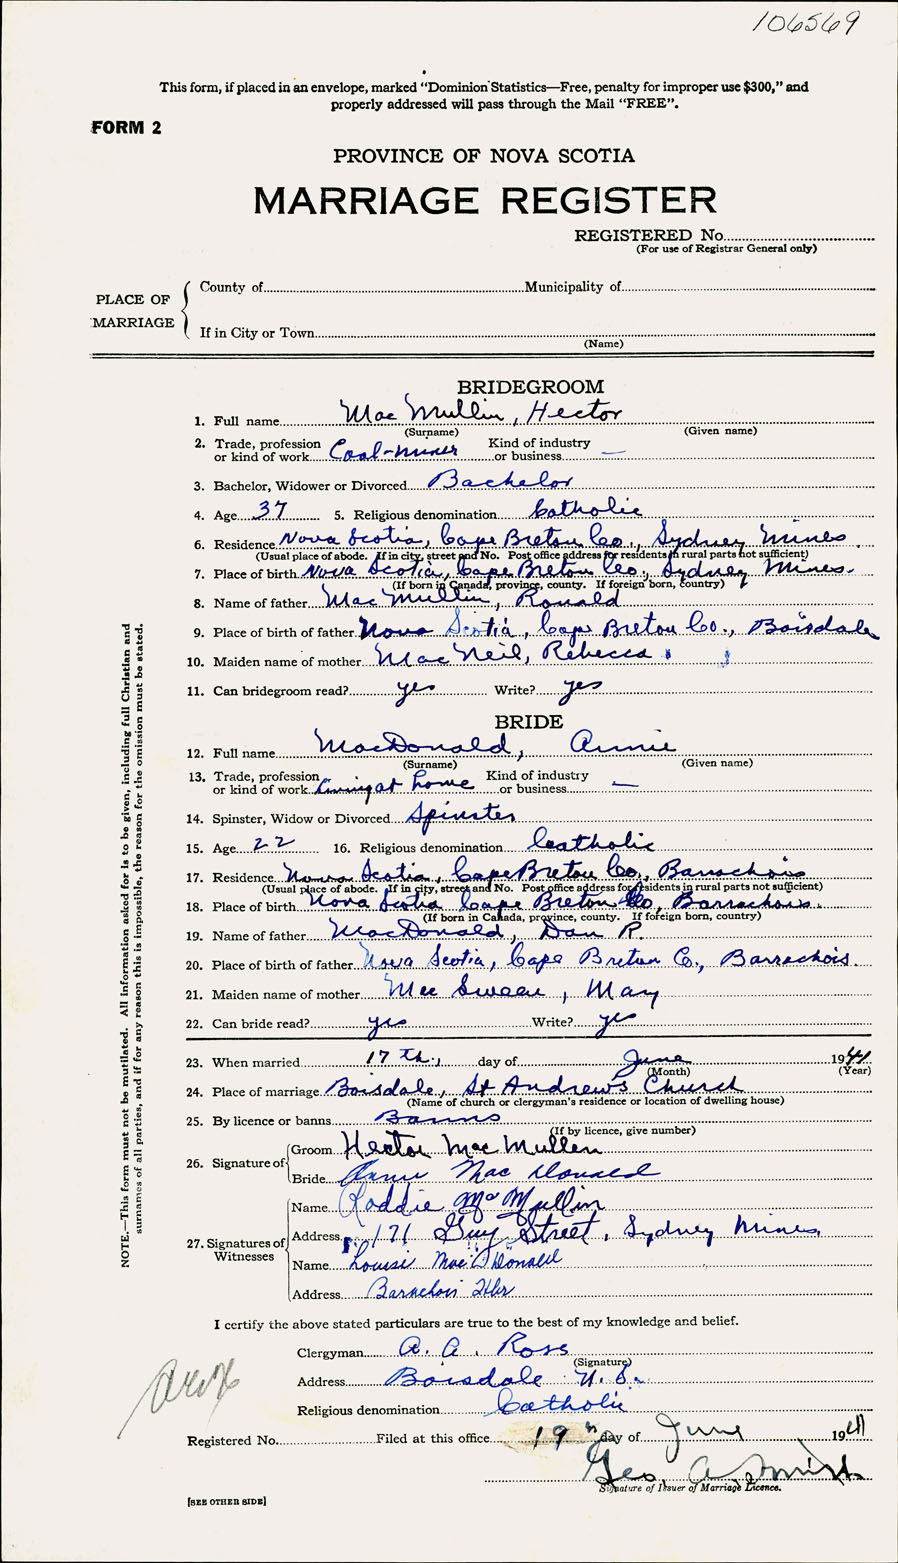 106569
This form, if placed in an envelope, marked "Dominion Statistics—Free, penalty for improper use $300," and
properly addressed will pass through the Mail "FREE".
FORM 2
PROVINCE OF NOVA SCOTIA
MARRIAGE REGISTER
REGISTERED No.
(For use of Registrar General only)
PLACE OF MARRIAGE
County of Municipality of
If in City or Town
(Name)
BRIDEGROOM
1. Full name MacMullin, Hector
(Surname) (Given name)
2. Trade, profession or kind of work Coal-miner Kind of industry or business —
3. Bachelor, Widower or Divorced Bachelor
4. Age 37 5. Religious denomination Catholic
6. Residence Nova Scotia, Cape Breton Co., Sydney Mines
(Usual place of abode. If in city, street and No. Post office address for residents in rural parts not sufficient)
7. Place of birth Nova Scotia, Cape Breton Co., Sydney Mines.
(If born in Canada, province, county. If foreign born, country)
8. Name of father MacMullin, Ronald
9. Place of birth of father Nova Scotia, Cape Breton Co., Boisdale
10. Maiden name of mother MacNeil, Rebecca
11. Can bridegroom read? yes Write? yes
BRIDE
12. Full name MacDonald, Annie
(Surname) (Given name)
13. Trade, profession or kind of work Living at home Kind of industry or business —
14. Spinster, Widow or Divorced Spinster
15. Age 22 16. Religious denomination Catholic
17. Residence Nova Scotia, Cape Breton Co., Barrachois
(Usual place of abode. If in city, street and No. Post office address for residents in rural parts not sufficient)
18. Place of birth Nova Scotia Cape Breton Co, Barrachois.
(If born in Canada, province, county. If foreign born, country)
19. Name of father MacDonald, Dan R
20. Place of birth of father Nova Scotia, Cape Breton Co., Barrachois.
21. Maiden name of mother MacSwean, Mary
22. Can bride read? yes Write? yes
23. When married 17th, day of June 1941
(Month) (Year)
24. Place of marriage Boisdale, St Andrew's Church
(Name of church or clergyman's residence or location of dwelling house)
25. By licence or banns Banns
(If by licence, give number)
26. Signature of
Groom Hector MacMullen
Bride Annie MacDonald
27. Signatures of Witnesses
Name Roddie McMullin
Address 171 Guy Street, Sydney Mines
Name Louise MacDonald
Address Barachois Hbr
I certify the above stated particulars are true to the best of my knowledge and belief.
Clergyman A. A. Ross
(Signature)
Address Boisdale N.S.
Religious denomination Catholic
Registered No. Filed at this office 19th day of June 1941
Geo. A
Signature of Issuer of Marriage Licence.
[SEE OTHER SIDE]
NOTE.—This form must not be mutilated. All information asked for is to be given, including full Christian and
surnames of all parties, and if for any reason this is impossible, the reason for the omission must be stated.